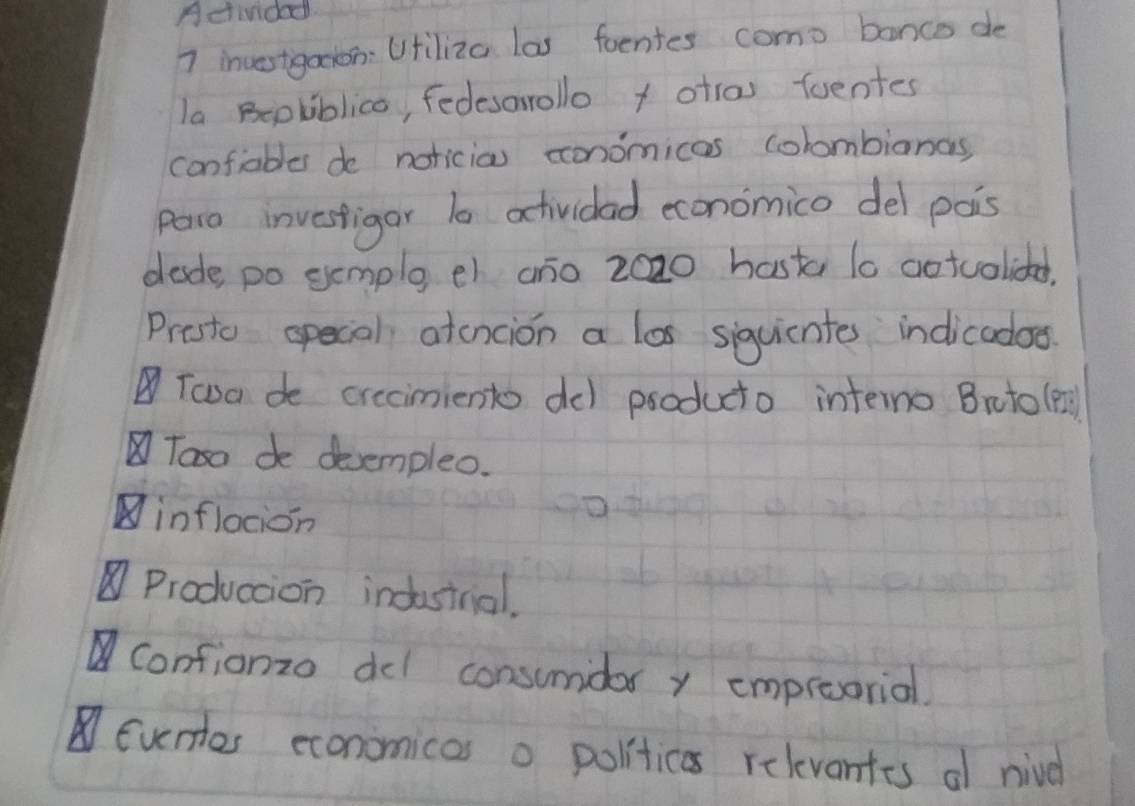 Actividad
1 investigación: Utiliza las fuentes como banco de
la República, fedesarrollo y otras fuentes
confiables de noticias económicas colombianas,
para investigar la actividad económico del país
desde, po ejemplo, el año 2020 hasta la actualidad.
Presta special atención a los siguientes indicadoo.
Tasa de crecimiento del producto interno Bruto (PIB)
Tasa de desempleo.
inflación
Produccion industrial.
Confianza del consumidor y empresarial.
Eventos económicos o políticos relevantes al nivel